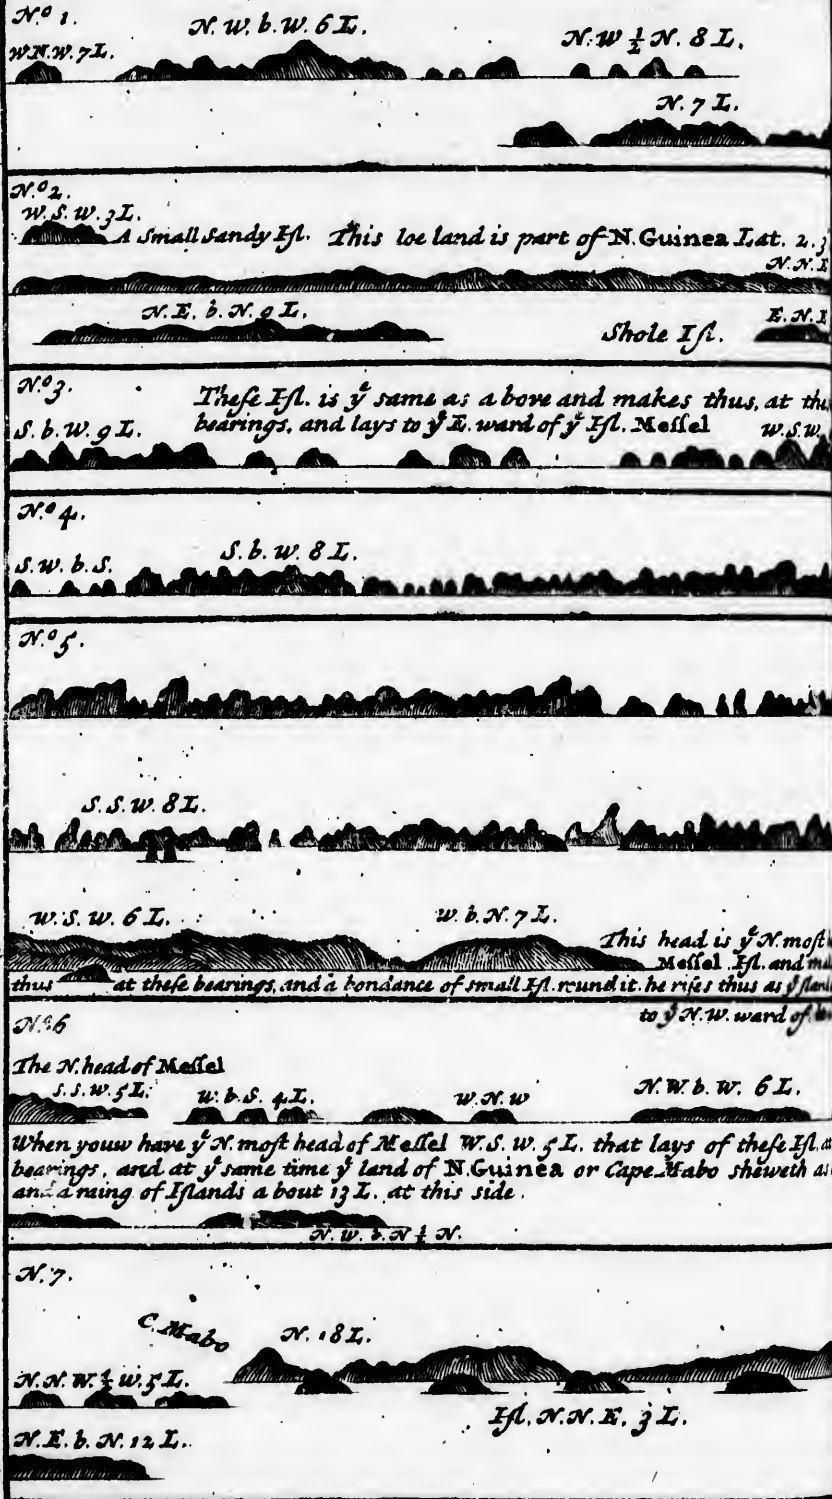 N.º 1.
N. W. b. W. 6 L.
N. W ½ N. 8 L.
W.N.W. 7 L.
N. 7 L.
N.º 2.
W. S. W. 3 L.
A Small Sandy Iſl. This loe land is part of N. Guinea Lat. 2.
N. N. E
N. E. b. N. 9 L.
Shole Iſl.
E. N. E
N.º 3.
Theſe Iſl. is yͤ same as a bove and makes thus, at
bearings, and lays to yͤ E. ward of yͤ Iſl. Meſſel
S. b. W. 9 L.
W. S. W.
N.º 4.
S. W. b. S.
S. b. W. 8 L.
N.º 5.
S. S. W. 8 L.
W. S. W. 6 L.
W. b. N. 7 L.
This head is yͤ N. moſt
Meſſel Iſl. and
thus at theſe bearings, and a bondance of small Iſl. round it. he riſes thus as yͤ
to yͤ N. W. ward of
N.º 6
The N. head of Meſſel
S. S. W. 5 L.
W. b. S. 4 L.
W. N. W
N. W. b. W. 6 L.
When youw have yͤ N. moſt head of Meſſel W. S. W. 5 L. that lays of theſe Iſl.
bearings, and at yͤ same time yͤ land of N. Guinea or Cape Mabo sheweth
and a raing of Iſlands a bout 13 L. at this side.
N. W. b. N ½ N.
N. 7.
C. Mabo
N. 18 L.
N. N. W. ½ W. 5 L.
Iſl. N. N. E. 3 L.
N. E. b. N. 12 L.